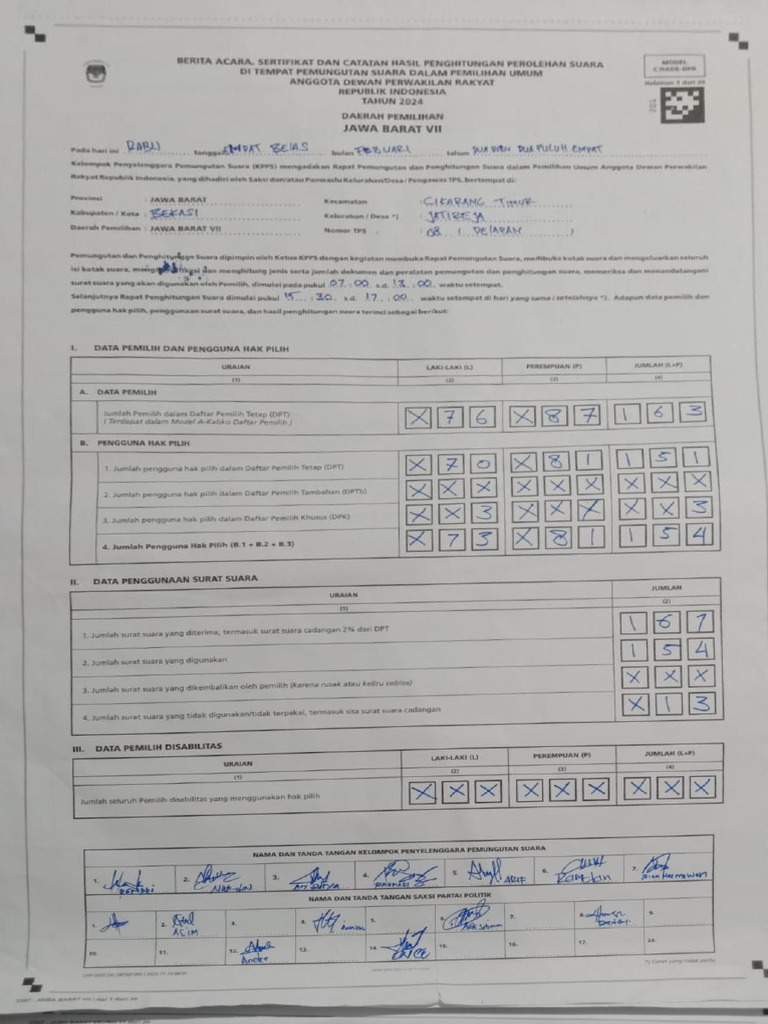 BERITA ACARA, SERTIFIKAT DAN CATATAN HASIL PENGHITUNGAN PEROLEHAN SUARA
DI TEMPAT PEMUNGUTAN SUARA DALAM PEMILIHAN UMUM
ANGGOTA DEWAN PERWAKILAN RAKYAT
REPUBLIK INDONESIA
TAHUN 2024
MODEL
C.HASIL-DPR
Halaman 1 dari
DAERAH PEMILIHAN
JAWA BARAT VII
Pada hari ini RABU tanggal EMPAT BELAS bulan FEBUARI tahun DUA RIBU DUA PULUH EMPAT
Kelompok Penyelenggara Pemungutan Suara (KPPS) mengadakan Rapat Pemungutan dan Penghitungan Suara dalam Pemilihan Umum Anggota Dewan Perwakilan
Rakyat Republik Indonesia, yang dihadiri oleh Saksi dan/atau Panwaslu Kelurahan/Desa / Pengawas TPS, bertempat di:
Provinsi : JAWA BARAT Kecamatan : CIKARANG TIMUR
Kabupaten / Kota : BEKASI Kelurahan / Desa *) : JATIREJA
Daerah Pemilihan : JAWA BARAT VII Nomor TPS : 08 ( DELAPAN )
Pemungutan dan Penghitungan Suara dipimpin oleh Ketua KPPS dengan kegiatan membuka Rapat Pemungutan Suara, membuka kotak suara dan mengeluarkan seluruh
isi kotak suara, dan menghitung jenis serta jumlah dokumen dan peralatan pemungutan dan penghitungan suara, memeriksa dan menandatangani
surat suara yang akan digunakan oleh Pemilih, dimulai pada pukul 07 : 00 s.d. 13 : 00 waktu setempat.
Selanjutnya Rapat Penghitungan Suara dimulai pukul 15 : 30 s.d. 17 : 00 waktu setempat di hari yang sama / setelahnya *). Adapun data pemilih dan
pengguna hak pilih, penggunaan surat suara, dan hasil penghitungan suara terinci sebagai berikut:
I. DATA PEMILIH DAN PENGGUNA HAK PILIH
URAIAN LAKI-LAKI (L) PEREMPUAN (P) JUMLAH (L+P)
(1) (2) (3) (4)
A. DATA PEMILIH
Jumlah Pemilih dalam Daftar Pemilih Tetap (DPT) X 7 6 X 8 7 1 6 3
( Terdapat dalam Model A-Kabko Daftar Pemilih )
B. PENGGUNA HAK PILIH
1. Jumlah pengguna hak pilih dalam Daftar Pemilih Tetap (DPT) X 7 0 X 8 1 1 5 1
2. Jumlah pengguna hak pilih dalam Daftar Pemilih Tambahan (DPTb) X X X X X X X X X
3. Jumlah pengguna hak pilih dalam Daftar Pemilih Khusus (DPK) X X 3 X X X X X 3
4. Jumlah Pengguna Hak Pilih (B.1 + B.2 + B.3) X 7 3 X 8 1 1 5 4
II. DATA PENGGUNAAN SURAT SUARA
URAIAN JUMLAH
(1) (2)
1. Jumlah surat suara yang diterima, termasuk surat suara cadangan 2% dari DPT 1 6 7
2. Jumlah surat suara yang digunakan 1 5 4
3. Jumlah surat suara yang dikembalikan oleh pemilih (karena rusak atau keliru coblos) X X X
4. Jumlah surat suara yang tidak digunakan/tidak terpakai, termasuk sisa surat suara cadangan X 1 3
III. DATA PEMILIH DISABILITAS
URAIAN LAKI-LAKI (L) PEREMPUAN (P) JUMLAH (L+P)
(1) (2) (3) (4)
Jumlah seluruh Pemilih disabilitas yang menggunakan hak pilih X X X X X X X X X
NAMA DAN TANDA TANGAN KELOMPOK PENYELENGGARA PEMUNGUTAN SUARA
1. 2. 3. 4. 5. ARIF 6. 7. Dian Hermawan
NAMA DAN TANDA TANGAN SAKSI PARTAI POLITIK
1. 2. ACIM 3. 4. 5. 6. 7. 8. 9.
10. 11. 12. Andre 13. 14. 15. 16. 17. 24.
*) Coret yang tidak perlu